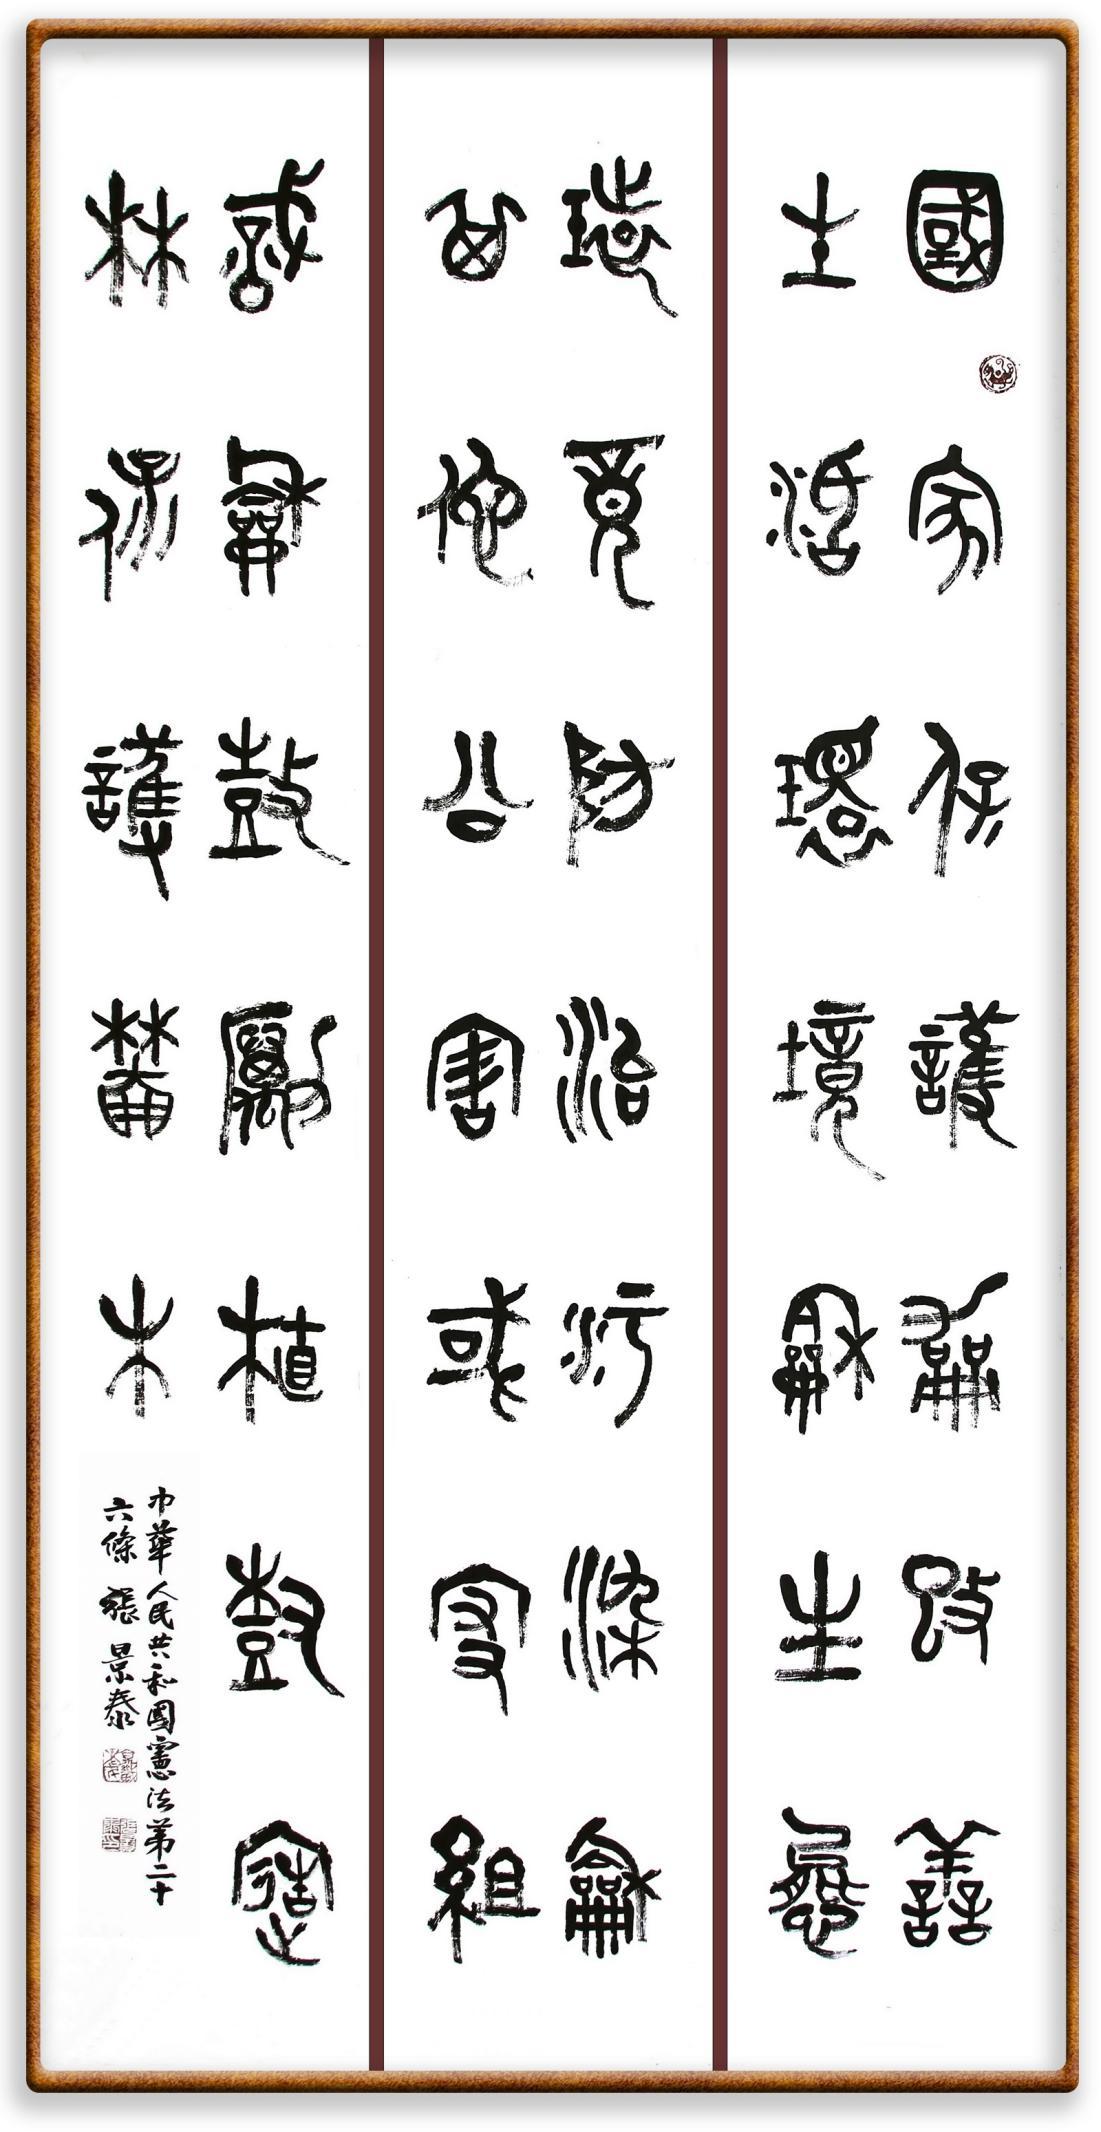 國家保護和改善
生活環境和生態
環境防治污染和
其他公害或家組
織和鼓勵植樹造
林保護林木
中華人民共和國憲法第二十
六條 張景泰